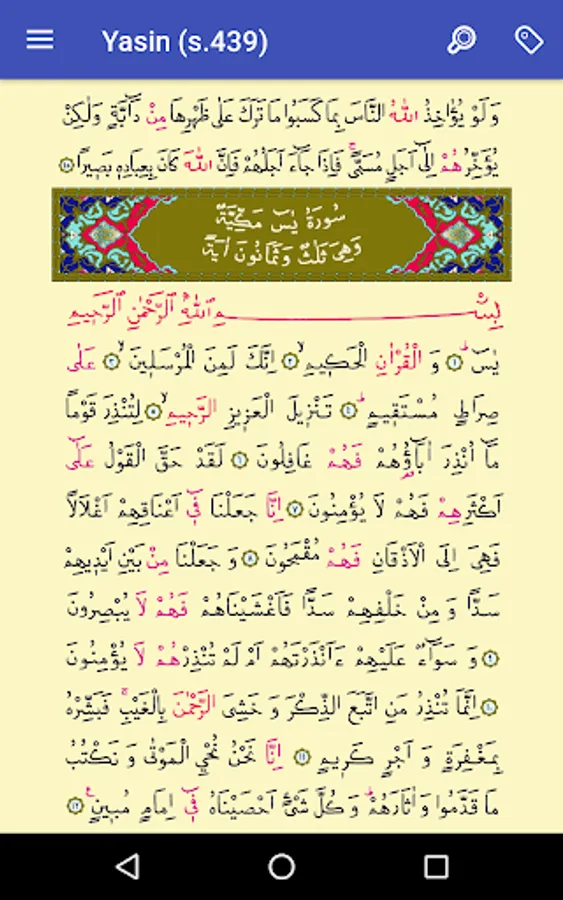 Yasin (s.439)
وَلَوْ يُؤَاخِذُ اللّٰهُ النَّاسَ بِمَا كَسَبُوا مَا تَرَكَ عَلٰى ظَهْرِهَا مِنْ دَٓابَّةٍ وَلٰكِنْ
يُؤَخِّرُهُمْ اِلٰٓى اَجَلٍ مُسَمًّىۚ فَاِذَا جَٓاءَ اَجَلُهُمْ فَاِنَّ اللّٰهَ كَانَ بِعِبَادِهٖ بَصٖيرًا ﴿٤٥﴾
سُورَةُ يٰسٓ مَكِّيَّةٌ
وَهِىَ ثَلٰثٌ وَثَمَانُونَ اٰيَةً
بِسْمِ اللّٰهِ الرَّحْمٰنِ الرَّحٖيمِ
يٰسٓۜ ﴿١﴾ وَ الْقُرْاٰنِ الْحَكٖيمِۙ ﴿٢﴾ اِنَّكَ لَمِنَ الْمُرْسَلٖينَۙ ﴿٣﴾ عَلٰى
صِرَاطٍ مُسْتَقٖيمٍۜ ﴿٤﴾ تَنْزٖيلَ الْعَزٖيزِ الرَّحٖيمِۙ ﴿٥﴾ لِتُنْذِرَ قَوْمًا
مَٓا اُنْذِرَ اٰبَٓاؤُ۬هُمْ فَهُمْ غَافِلُونَ ﴿٦﴾ لَقَدْ حَقَّ الْقَوْلُ عَلٰٓى
اَكْثَرِهِمْ فَهُمْ لَا يُؤْمِنُونَ ﴿٧﴾ اِنَّا جَعَلْنَا فٖٓى اَعْنَاقِهِمْ اَغْلَالًا
فَهِىَ اِلَى الْاَذْقَانِ فَهُمْ مُقْمَحُونَ ﴿٨﴾ وَ جَعَلْنَا مِنْ بَيْنِ اَيْدٖيهِمْ
سَدًّا وَ مِنْ خَلْفِهِمْ سَدًّا فَاَغْشَيْنَاهُمْ فَهُمْ لَا يُبْصِرُونَ
﴿٩﴾ وَ سَوَٓاءٌ عَلَيْهِمْ ءَاَنْذَرْتَهُمْ اَمْ لَمْ تُنْذِرْهُمْ لَا يُؤْمِنُونَ
﴿١٠﴾ اِنَّمَا تُنْذِرُ مَنِ اتَّبَعَ الذِّكْرَ وَ خَشِىَ الرَّحْمٰنَ بِالْغَيْبِۚ فَبَشِّرْهُ
بِمَغْفِرَةٍ وَ اَجْرٍ كَرٖيمٍ ﴿١١﴾ اِنَّا نَحْنُ نُحْيِ الْمَوْتٰى وَ نَكْتُبُ
مَا قَدَّمُوا وَ اٰثَارَهُمْۜ وَ كُلَّ شَىْءٍ اَحْصَيْنَاهُ فٖٓى اِمَامٍ مُبٖينٍ۟ ﴿١٢﴾